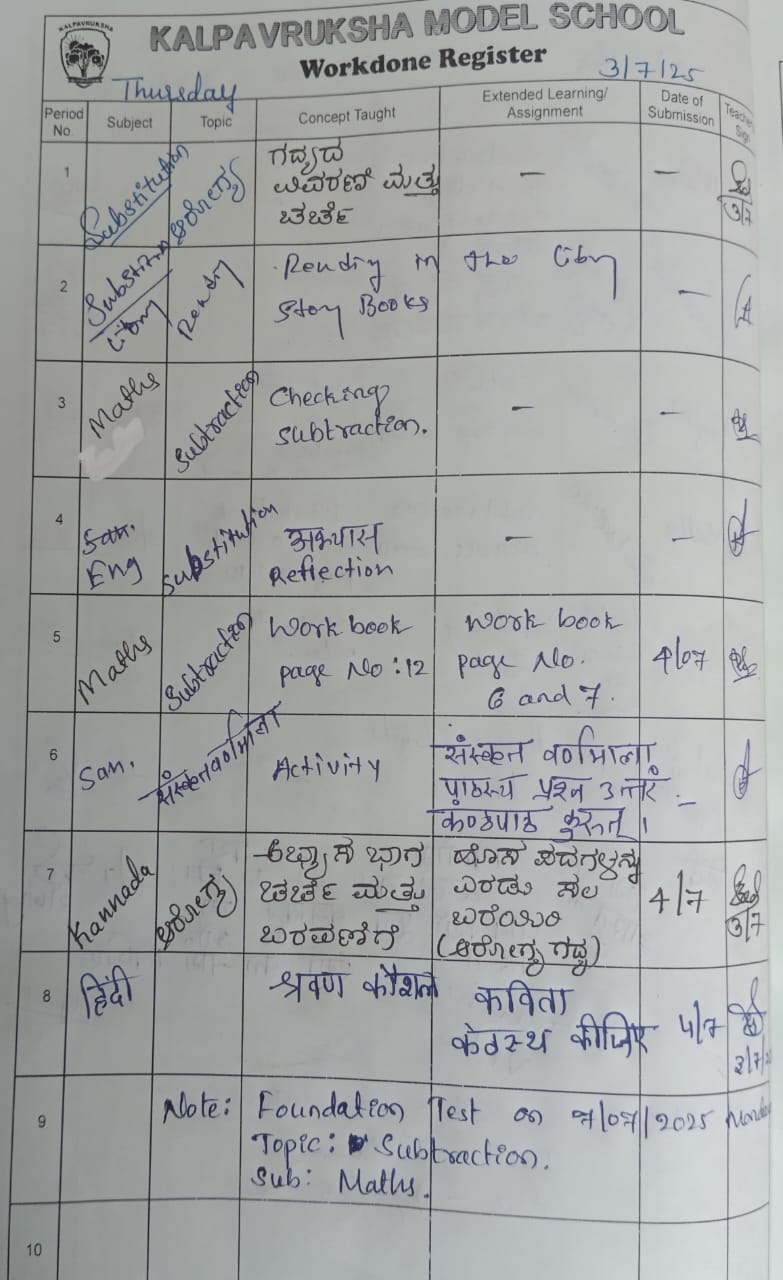 KALPAVRUKSHA
KALPAVRUKSHA MODEL SCHOOL
Workdone Register
Thursday 3/7/25
Period No. Subject Topic Concept Taught Extended Learning/ Assignment Date of Submission
1 Substitution ಆರೋಗ್ಯ ಗದ್ಯದ — —
ವಿವರಣೆ ಮತ್ತು
ಚರ್ಚೆ
3/7
2 Substitution Reading in the
Story Books —
3 Maths Subtraction Checking — —
subtraction.
4 San. Substitution अभ्यास — —
Eng Reflection
5 Maths Subtraction Work book Work book 4/07
page No:12 page No.
6 and 7.
6 San. Activity पाठस्य प्रश्न उत्तरं —
7 Kannada ಆರೋಗ್ಯ ಅಭ್ಯಾಸ ಭಾಗ ಹೊಸ ಪದಗಳನ್ನು 4/7
ಚರ್ಚೆ ಮತ್ತು ಎರಡು ಸಲ
ಬರವಣಿಗೆ ಬರೆಯಿರಿ
(ಆರೋಗ್ಯ ಗದ್ಯ) 3/7
8 हिंदी श्रवण कौशल कविता 4/7
कंठस्थ कीजिए
9 Note: Foundation Test on 7/07/2025
Topic: Subtraction.
Sub: Maths.
10